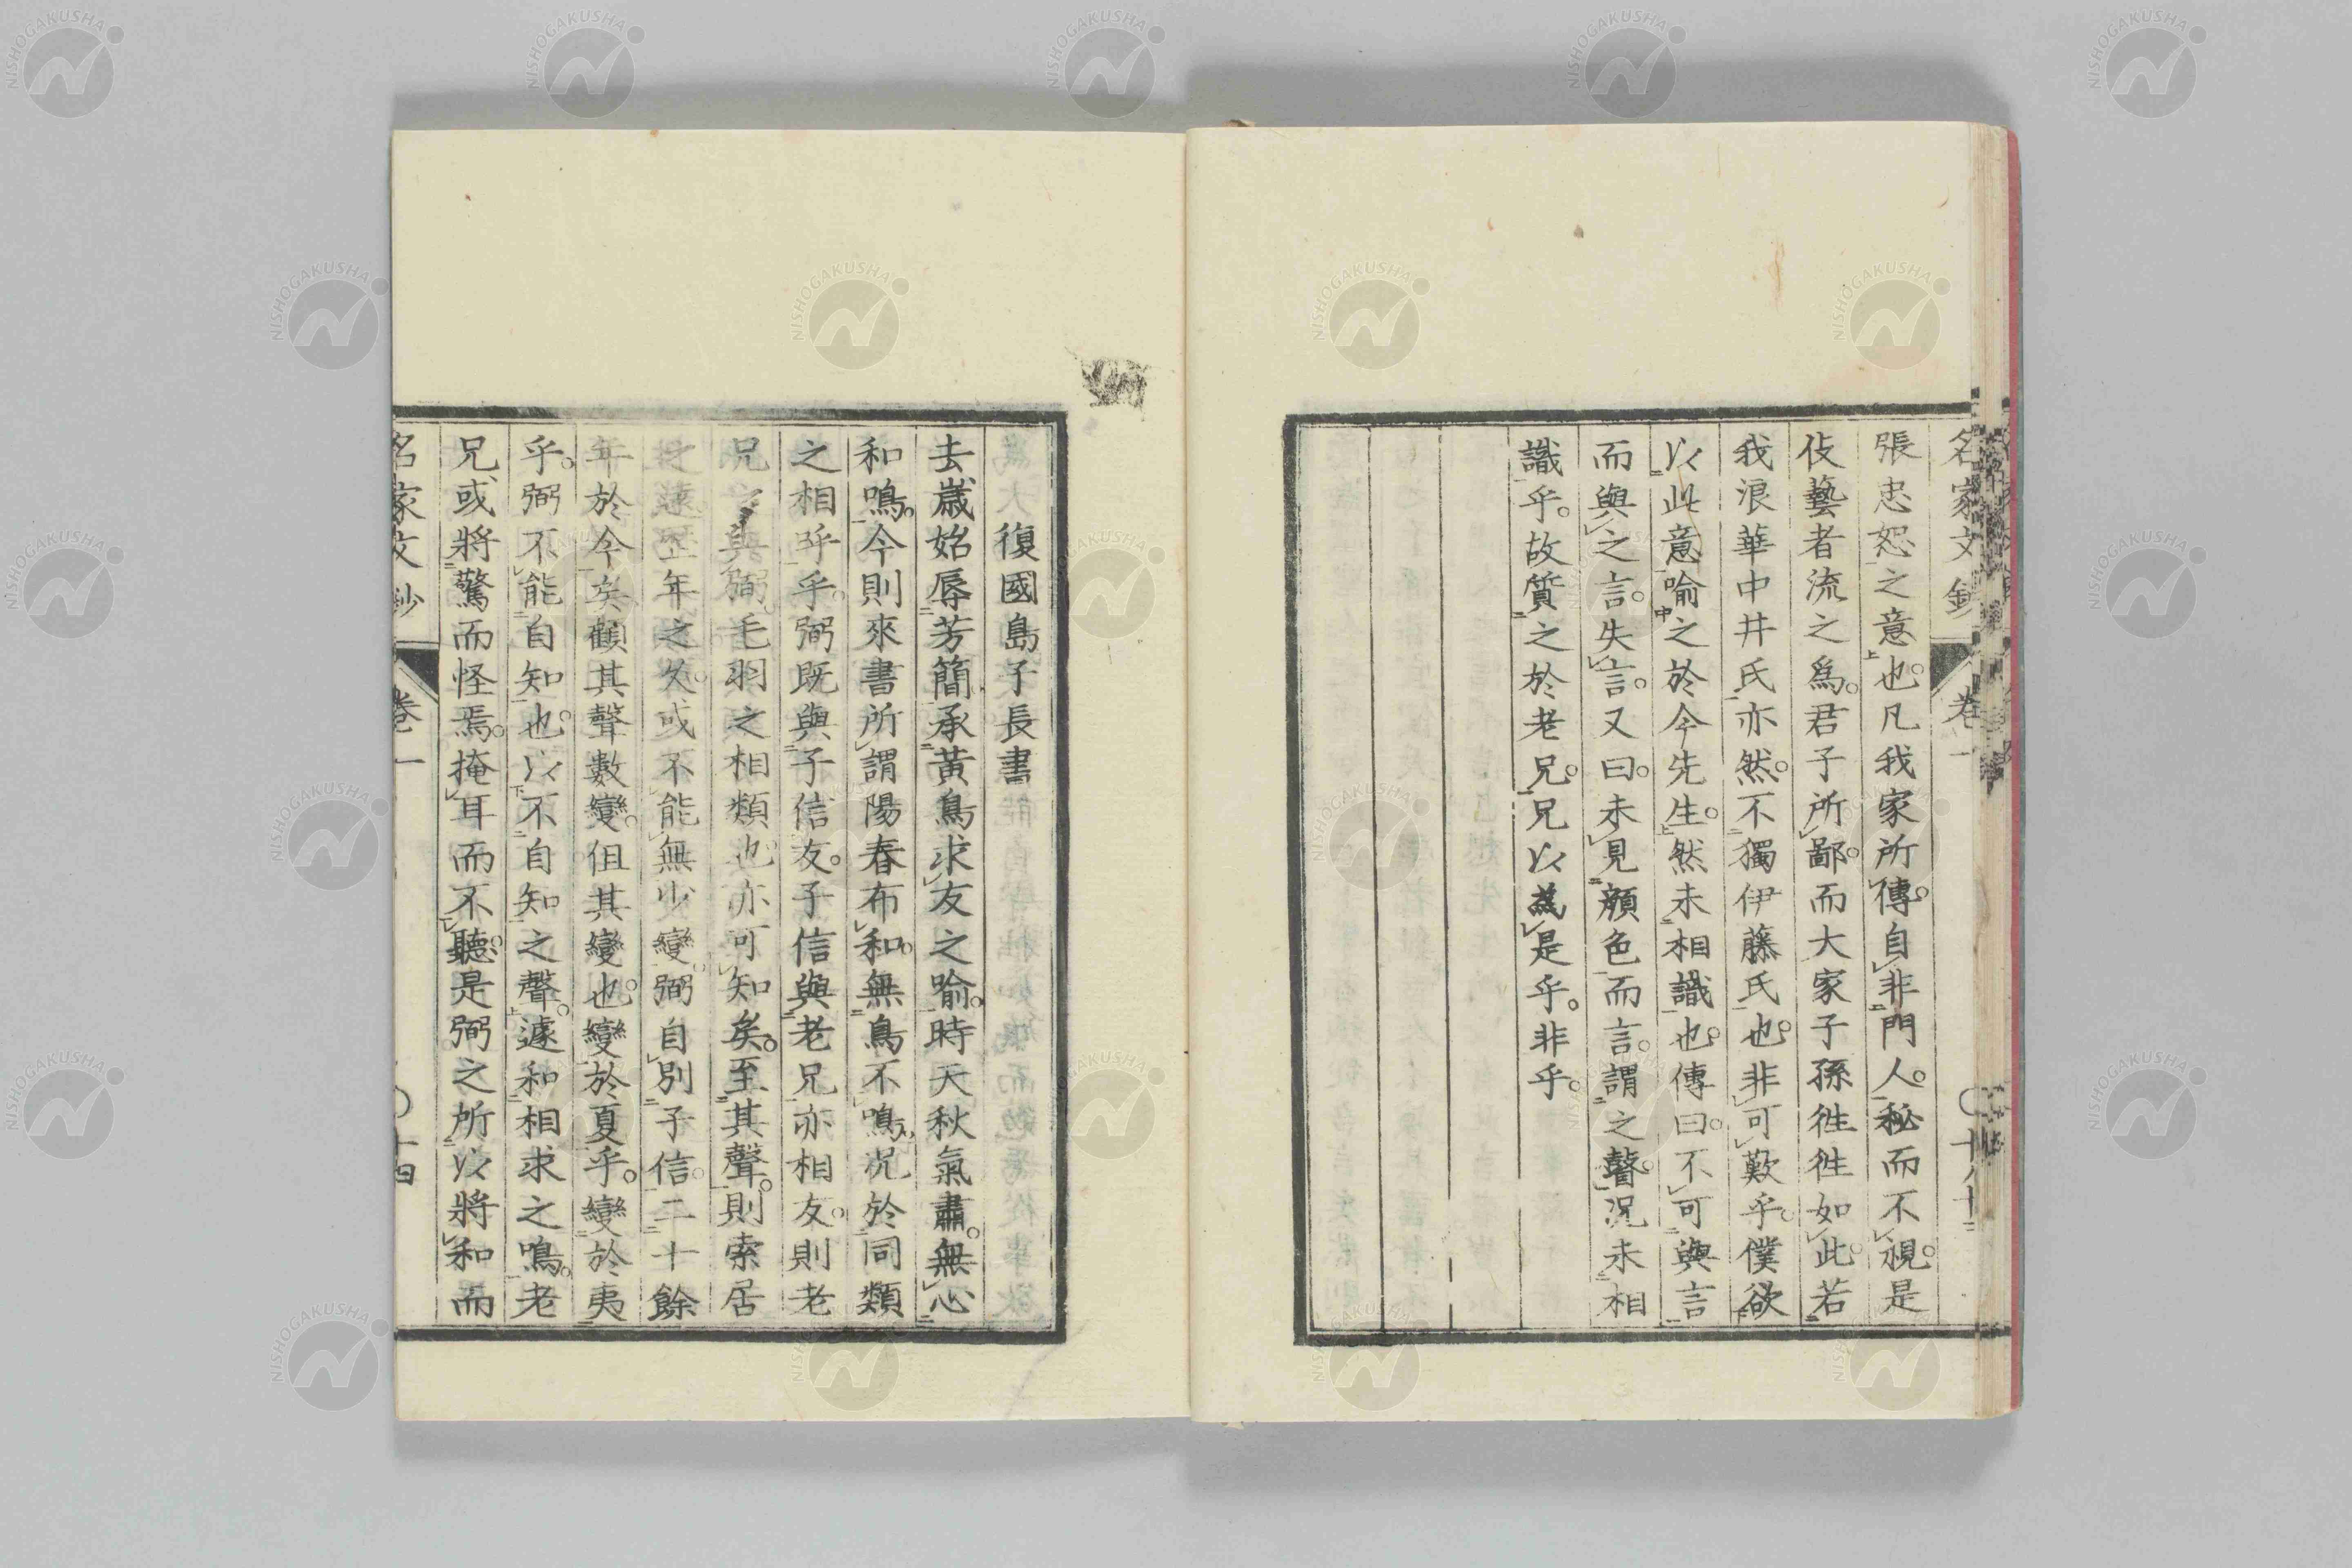 名家文鈔 卷一
張忠恕之意也。凡我家所傳。自非門人。秘而不視。是
伎藝者流之為。君子所鄙。而大家子孫徃徃如此。若
我浪華中井氏亦然。不獨伊藤氏也。非可歎乎。僕欲
以此意喻之於今先生。然未相識也。傳曰。不可與言
而與之言。失言。又曰。未見顔色而言。謂之瞽。况未相
識乎。故質之於老兄。兄以為是乎。非乎。
復國島子長書
去歲始辱芳簡。承黃鳥求友之喻。時天秋氣肅。無心
和鳴。今則來書所謂陽春布和。無鳥不鳴。况於同類
之相乎。弼既與子信友。子信與老兄亦相友。則老
兄與弼毛羽之相類也亦可知矣。至其聲。則索居
之遠歷年之久。或不能無少變。弼自別子信。二十餘
年於今矣。顧其聲數變。但其變也。變於夏乎。變於夷
乎。弼不能自知也。以不自知之聲。遽和相求之鳴。老
兄或將驚而怪焉。掩耳而不聽。是弼之所以將和而
名家文鈔 卷一 十四